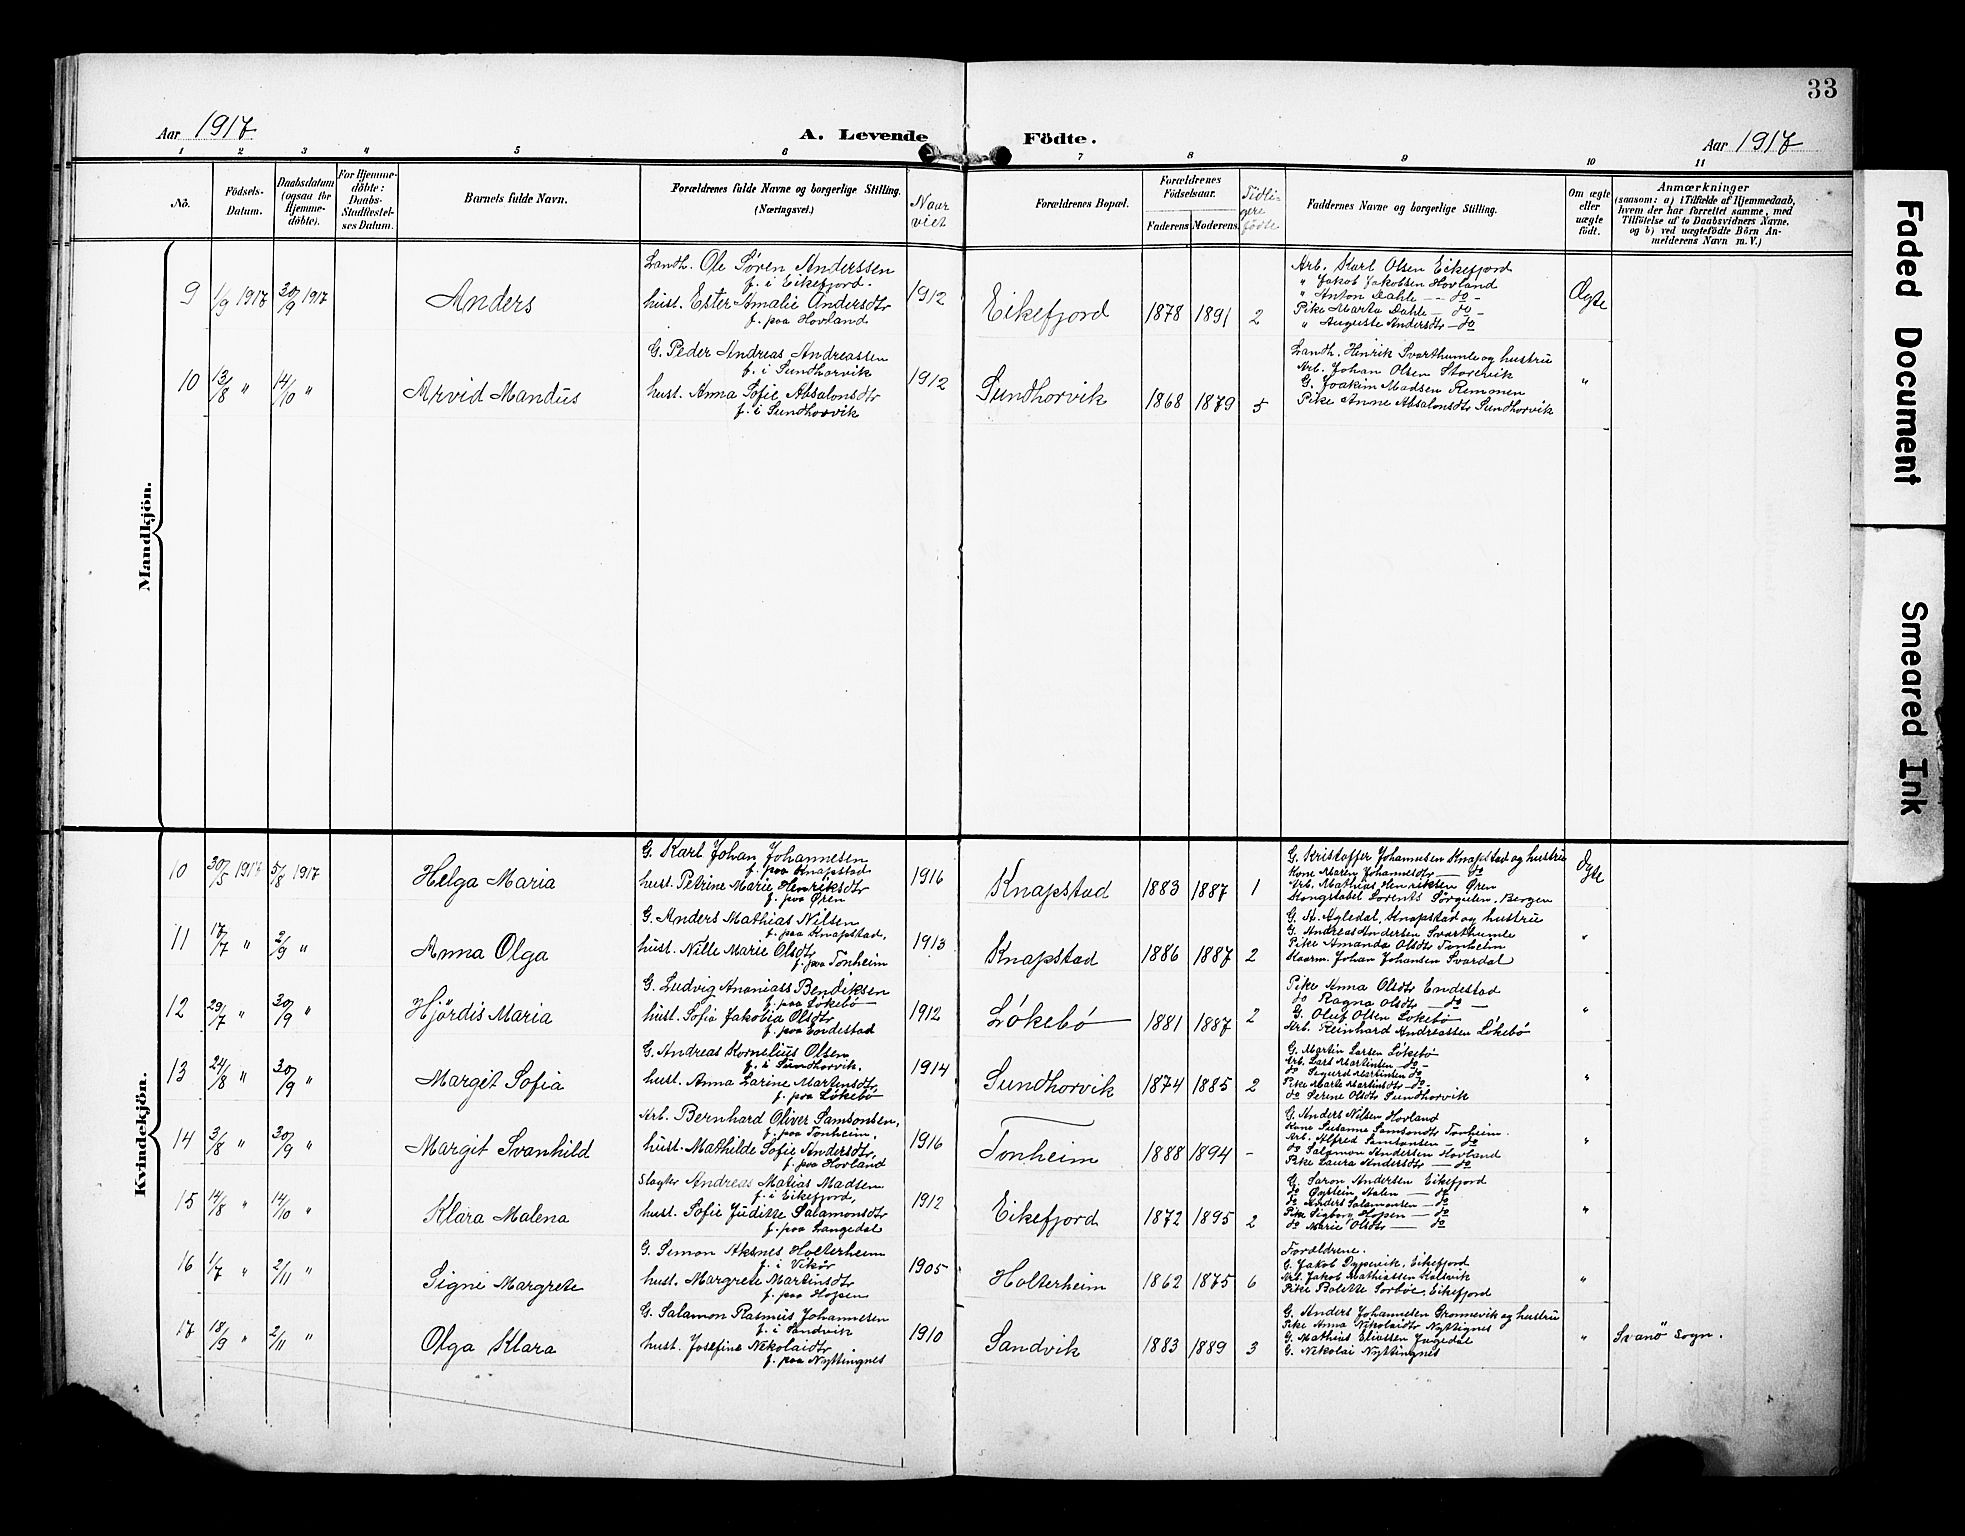 33
Aar 1917
A. Levende Födte.
Aar 1917
1 2 3 4 5 6 7 8 9 10 11
No.
Födsels-Datum.
Daabsdatum (ogsaa for Hjemme-döbte).
For Hjemme-döbte: Daabs-Stadfæstel-ses Datum.
Barnets fulde Navn.
Forældrenes fulde Navne og borgerlige Stilling. (Næringsvei.)
Naar viet
Forældrenes Bopæl.
Forældrenes Födselsaar.
Faderens Moderens
Tidligere födte
Faddernes Navne og borgerlige Stilling.
Om ægte eller uægte födt.
Anmærkninger
(saasom: a) i Tilfælde af Hjemmedaab,
hvem der har forrettet samme, med
Tilföielse af to Daabsvidners Navne,
og b) ved uægtefödte Börn An-
melderens Navn m. V.)
Mandkjön.
9 1/9 1917 30/9 1917 Anders
Landb. Ole Søren Anderssen
f. i Eikefjord.
hust. Ester Amalie Andersdtr
f. paa Hovland
1912 Eikefjord 1878 1891 2
Arb. Karl Olsen Eikefjord
" Jakob Jakobsen Hovland
" Anton Dahle - do -
Pike Marta Dahle - do -
" Auguste Andersdtr - do
Ægte
10 13/8 " 14/10 " Arvid Mandus
G. Peder Andreas Andreassen
f. i Sundhorvik
hust. Anna Sofie Absalonsdtr
f. i Sundhorvik
1912 Sundhorvik 1868 1879 5
Landh. Henrik Svarthumle og hustru
Arb. Johan Olsen Storevik
G. Joakim Madsen
Pike Anne Absalonsdtr Sundhorvik
"
Kvindekjön.
10 30/5 1917 5/8 1917 Helga Maria
G. Karl Johan Johannesen
f. paa Knapstad
hust. Petrine Marie Henriksdtr
f. paa Øren
1916 Knapstad 1883 1887 1
G. Kristoffer Johannesen Knapstad og hustru
Kone Maren Johannesdtr - do
Arb. Mathias Henriksen Øren
Konstabel Lorents Sørgulen, Bergen
Ægte
11 17/7 " 2/9 " Anna Olga
G. Anders Mathias Nilsen
f. paa Knapstad,
hust. Nille Marie Olsdtr
f. paa Tonheim
1913 Knapstad 1886 1887 2
G. A. Agledal, Knapstad og hustru
G. Andreas Andersen Svarthumle
Pike Amanda Olsdtr Tonheim
Johan Johansen Svardal
"
12 29/7 " 30/9 " Hjördis Maria
G. Ludvig Ananiass Bendiksen
f. paa Løkebø
hust. Sofia Jakobia Olsdtr
f. paa Endestad
1912 Løkebø 1881 1887 2
Pike Anna Olsdtr Endestad
do Ragna Olsdtr - do -
G. Oluf Olsen Løkebø
Arb. Reinhard Andreassen Løkebø
"
13 24/8 " 30/9 " Margit Sofia
G. Andreas Kornelius Olsen
f. i Sundhorvik.
hust. Anna Larine Martinsdtr,
f. paa Løkebø
1914 Sundhorvik 1874 1885 2
G. Martin Larsen Løkebø
Arb. Lars Martinsen - do -
do Sigurd Martinsen do -
Pike Marte Martinsdtr - do -
do Serine Olsdtr Sundhorvik
"
14 3/8 " 30/9 " Margit Svanhild
Arb. Bernhard Oliver Samsonsen,
f. paa Tonheim,
hust. Mathilde Sofie Andersdtr,
f. paa Hovland
1916 Tonheim 1888 1894 -
G. Anders Nilsen Hovland
Kone Susanne Samsondtr Tonheim.
Arb. Alfred Samsonsen - do
do Salamon Andersen Hovland
Pike Laura Andersdtr - do
"
15 14/8 " 14/10 " Klara Malena
Slagter Andreas Matias Madsen
f. i Eikefjord,
hust. Sofie Juditte Salamonsdtr
f. paa Langedal
1912 Eikefjord 1872 1895 2
G. Saron Andersen Eikefjord
do Øystein Aalen - do
do Anders Salamonsen - do
Pike Sigborn Hopen - do
do Marie Olsdtr - do
"
16 1/7 " 2/11 " Signi Margrete
G. Simon Aksnes Holterheim
f. i Vikör
hust. Margrete Martinsdtr
f. paa Hopen
1905 Holterheim 1862 1875 6
Forældrene.
G. Jakob Dypevik, Eikefjord
Arb. Jakob Mathiassen Kalsvik
Pike Bolette Sorbøe, Eikefjord
"
17 18/9 " 2/11 " Olga Klara
G. Salamon Rasmus Johannesen
f. i Sandvik
hust. Josefine Nekolaidtr
f. paa Nyttingnes
1910 Sandvik 1883 1889 3
G. Anders Johannesen Grønnevik og hustru
Pike Anna Nikolaidtr Nyttignes
G. Mathias Eliassen
G. Nekolai Nyttingnes
" Svanö Sogn.
Faded Document
Smeared Ink